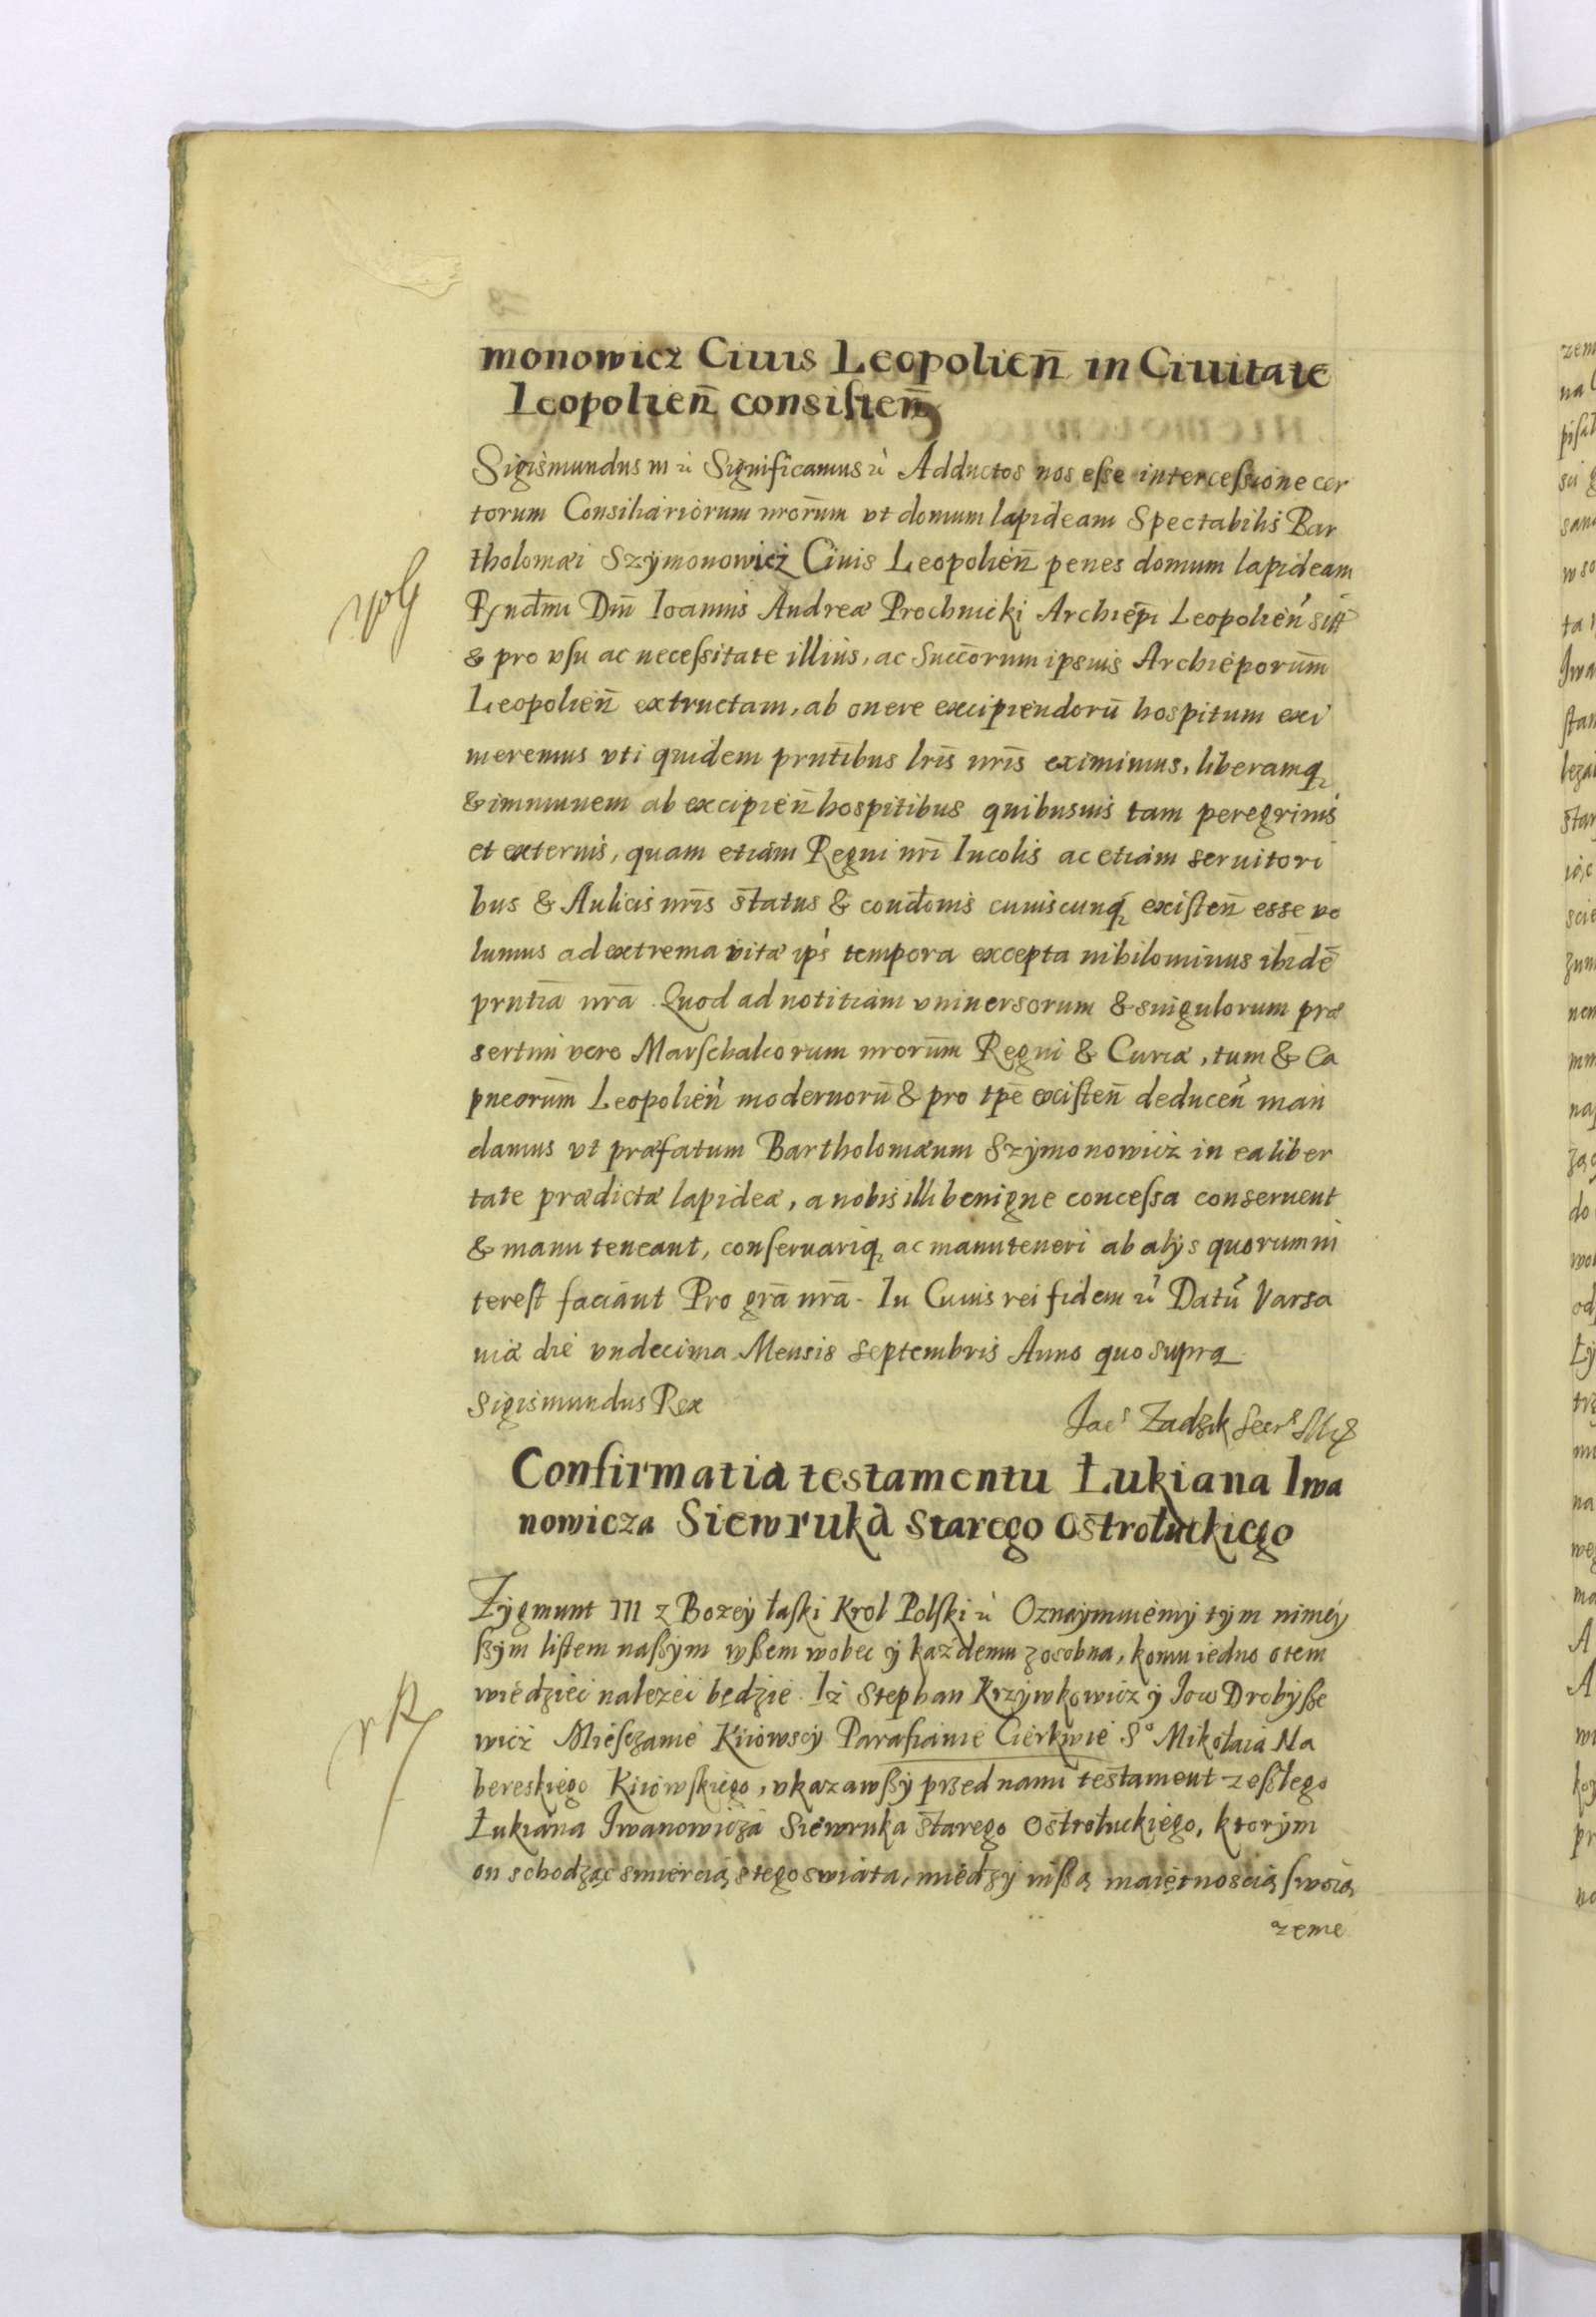 monowicz Ciuis Leopolien̄ in Ciuitate
Leopolien̄ consisten̄
Sigismundus III &c Significamus &c Adductos nos esse intercessione cer
torum Consiliariorum nrōrum vt domum lapideam Spectabilis Bar
tholomæi Szymonowicz Ciuis Leopolien̄ penes domum lapideam
Rndm̄i Dn̄i Ioannis Andreæ Prochnicki Archiep̄i Leopolien̄ sitt
& pro vsu ac necessitate illius, ac Succ̄orum ipsius Archiep̄orum
Leopolien̄ extructam, ab onere excipiendorū hospitum exi
meremus vti quidem prnt̄ibus lr̄is nr̄is eximimus, liberamq̨
& immunem ab excipien̄ hospitibus quibusuis tam peregrinis
et externis, quam etiam Regni nr̄i Incolis ac etiam seruitori
bus & Aulicis nr̄is status & cond̄onis cuiuscunq̨ existen̄ esse vo
lumus ad extrema vitæ ip̄s tempora excepta nihilominus ibidē
prnt̄iā nr̄ā. Quod ad notitiam vniuersorum & singulorum præ
sertim vero Marschalcorum nrōrum Regni & Curiæ, tum & Ca
pneōrum Leopolien̄ modernorū & pro tp̄e existen̄ deducen̄ man
damus vt præfatum Bartholomæum Szymonowicz in ea liber
tate prædictæ lapideæ, a nobis illi benigne concessa conseruent
& manu teneant, conseruariq̨ ac manuteneri ab alijs quorum in
terest faciant Pro gr̄a nr̄a. In Cuius rei fidem &c Datū Varsa
uiæ die vndecima Mensis Septembris Anno quo supra
Sigismundus Rex
Jac^s Zadzik Secr^s
Confirmatia testamentu Łukiana Iwa
nowicza Siewruka starego Ostrołuckiego
Zygmunt III z Bozey łaski Krol Polski &c Oznaymuiemy tym niniey
ßym listem naßym wßem wobec y każdemu zosobna, komu iedno o tem
wiedzieć nalezeć będzie. Iż Stephan Krzywkowicz y Iow Drobyße
wicz Miesczanie Kiiowscy Parafianie Cierkwie S^o Mikołaia Na
bereskiego Kiiowskiego, vkazawßy przed nami testament zeßłego
Łukiana Iwanowicza Siewruka starego Ostrołuckiego, ktorym
on schodząc smiercią z tego swiata, miedzy inßą maiętnoscią swoią
zeme